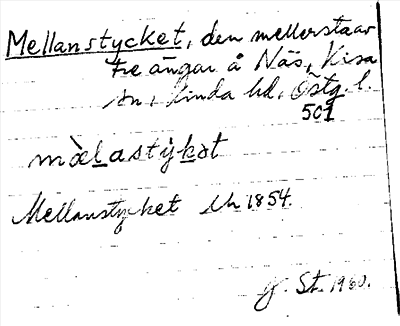 Mellanstycket, den mellerstaav
tre ängar å Näs, Kisa
sn, Kinda hd, Östg. l.
501
mæ̀lastỳkət
Mellanstycket Lh 1854.
G. St. 1960.